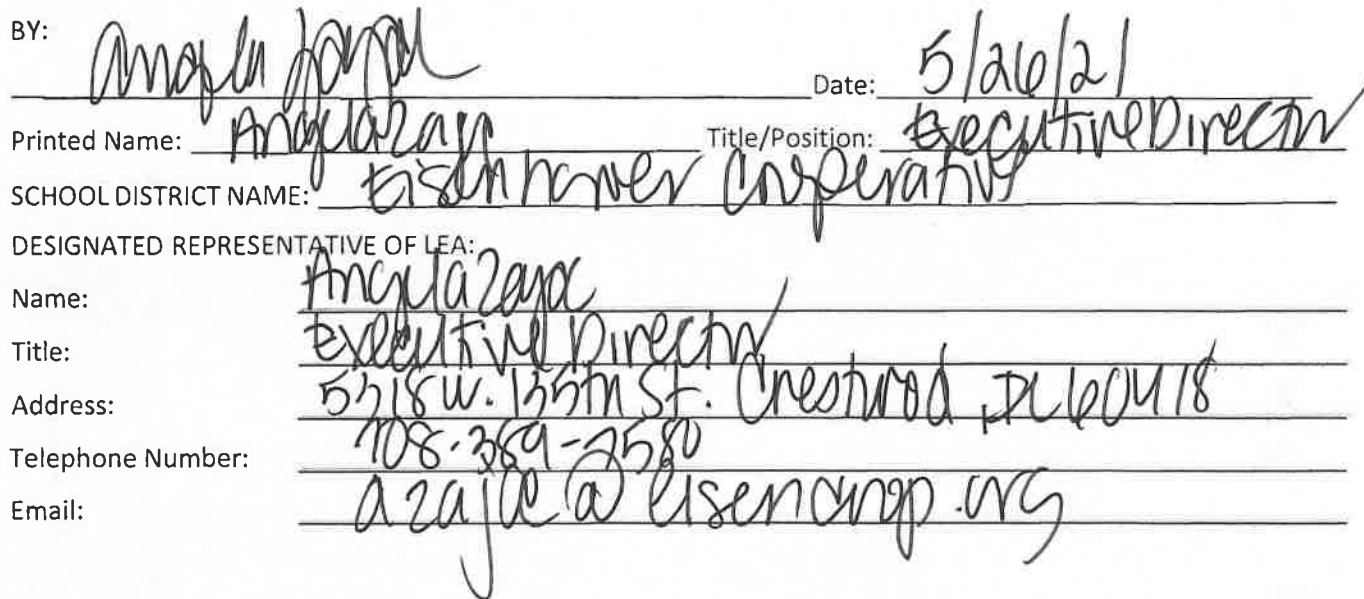 BY: Angela Zajac Date: 5/26/21
Printed Name: Angela Zajac Title/Position: Executive Director
SCHOOL DISTRICT NAME: Eisenhower Cooperative
DESIGNATED REPRESENTATIVE OF LEA:
Name: Angela Zajac
Title: Executive Director
Address: 5318 W. 135th St. Crestwood, IL 60418
Telephone Number: 708-389-7580
Email: azajac@eisencoop.org